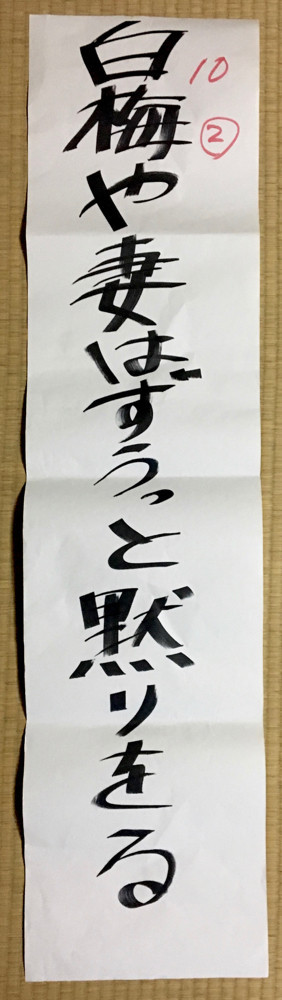 白梅や妻はずうっと黙りをる
10
②